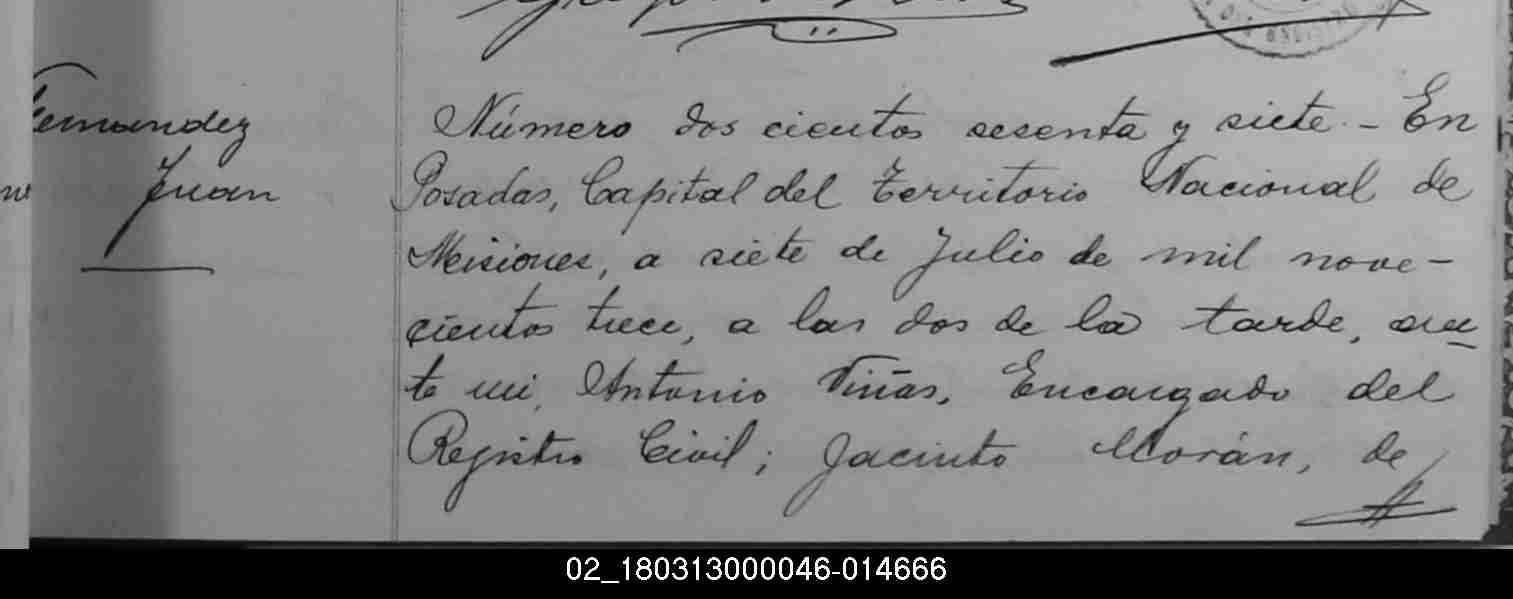 Fernandez
Juan
Número dos cientos sesenta y siete. - En
Posadas, Capital del Territorio Nacional de
Misiones, a siete de Julio de mil nove-
cientos trece, a las dos de la tarde, an
te mi, Antonio Viñas, Encargado del
Registro Civil; Jacinto Morán, de
02_180313000046-014666